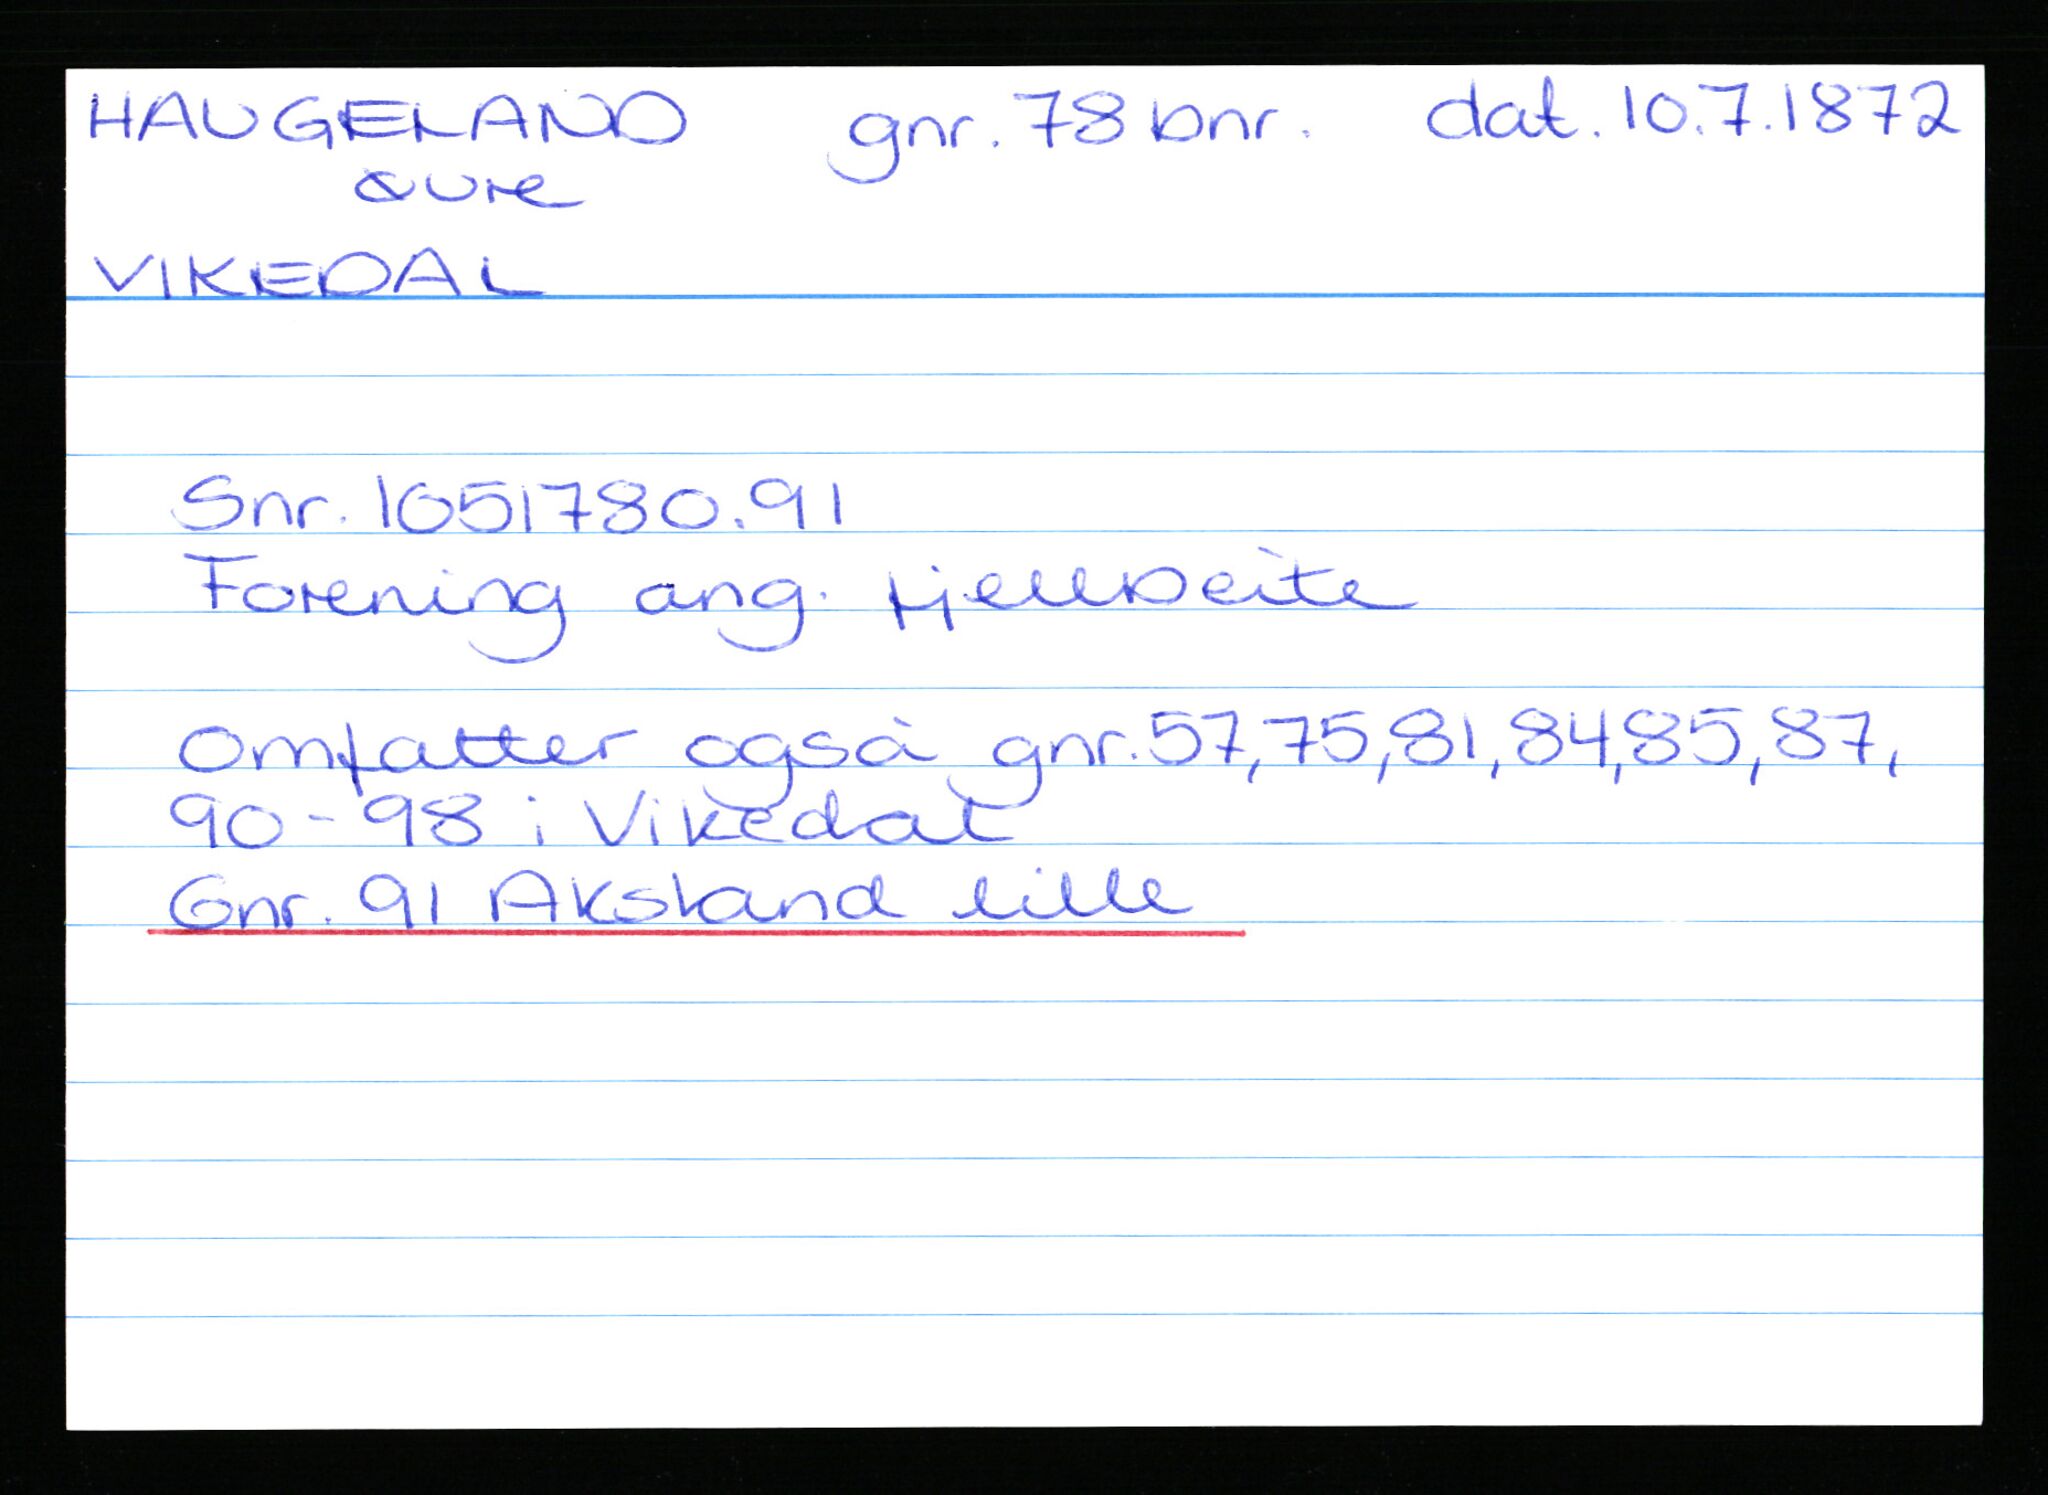 HAUGELAND gnr. 78 bnr. dat. 10.7.1872
øvre
VIKEDAL
Snr. 1051780.91
Forening ang. fjellbeite
Omfatter også gnr. 57, 75, 81, 84, 85, 87,
90 - 98 i Vikedal
Gnr. 91 Aksland lille